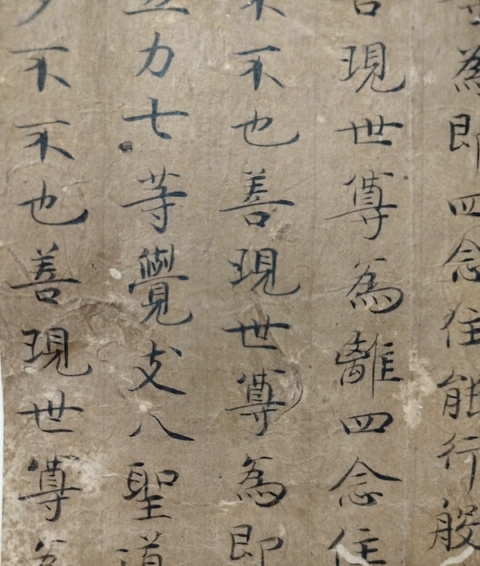 為即四念住能行般
現世尊為離四念住
不也善現世尊為即
力七等覺支八聖道
不不也善現世尊